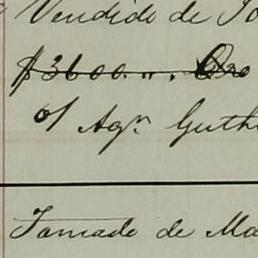 Vendido de Jo
$3600.".
o/ Agn Guth
Tomado de Ma